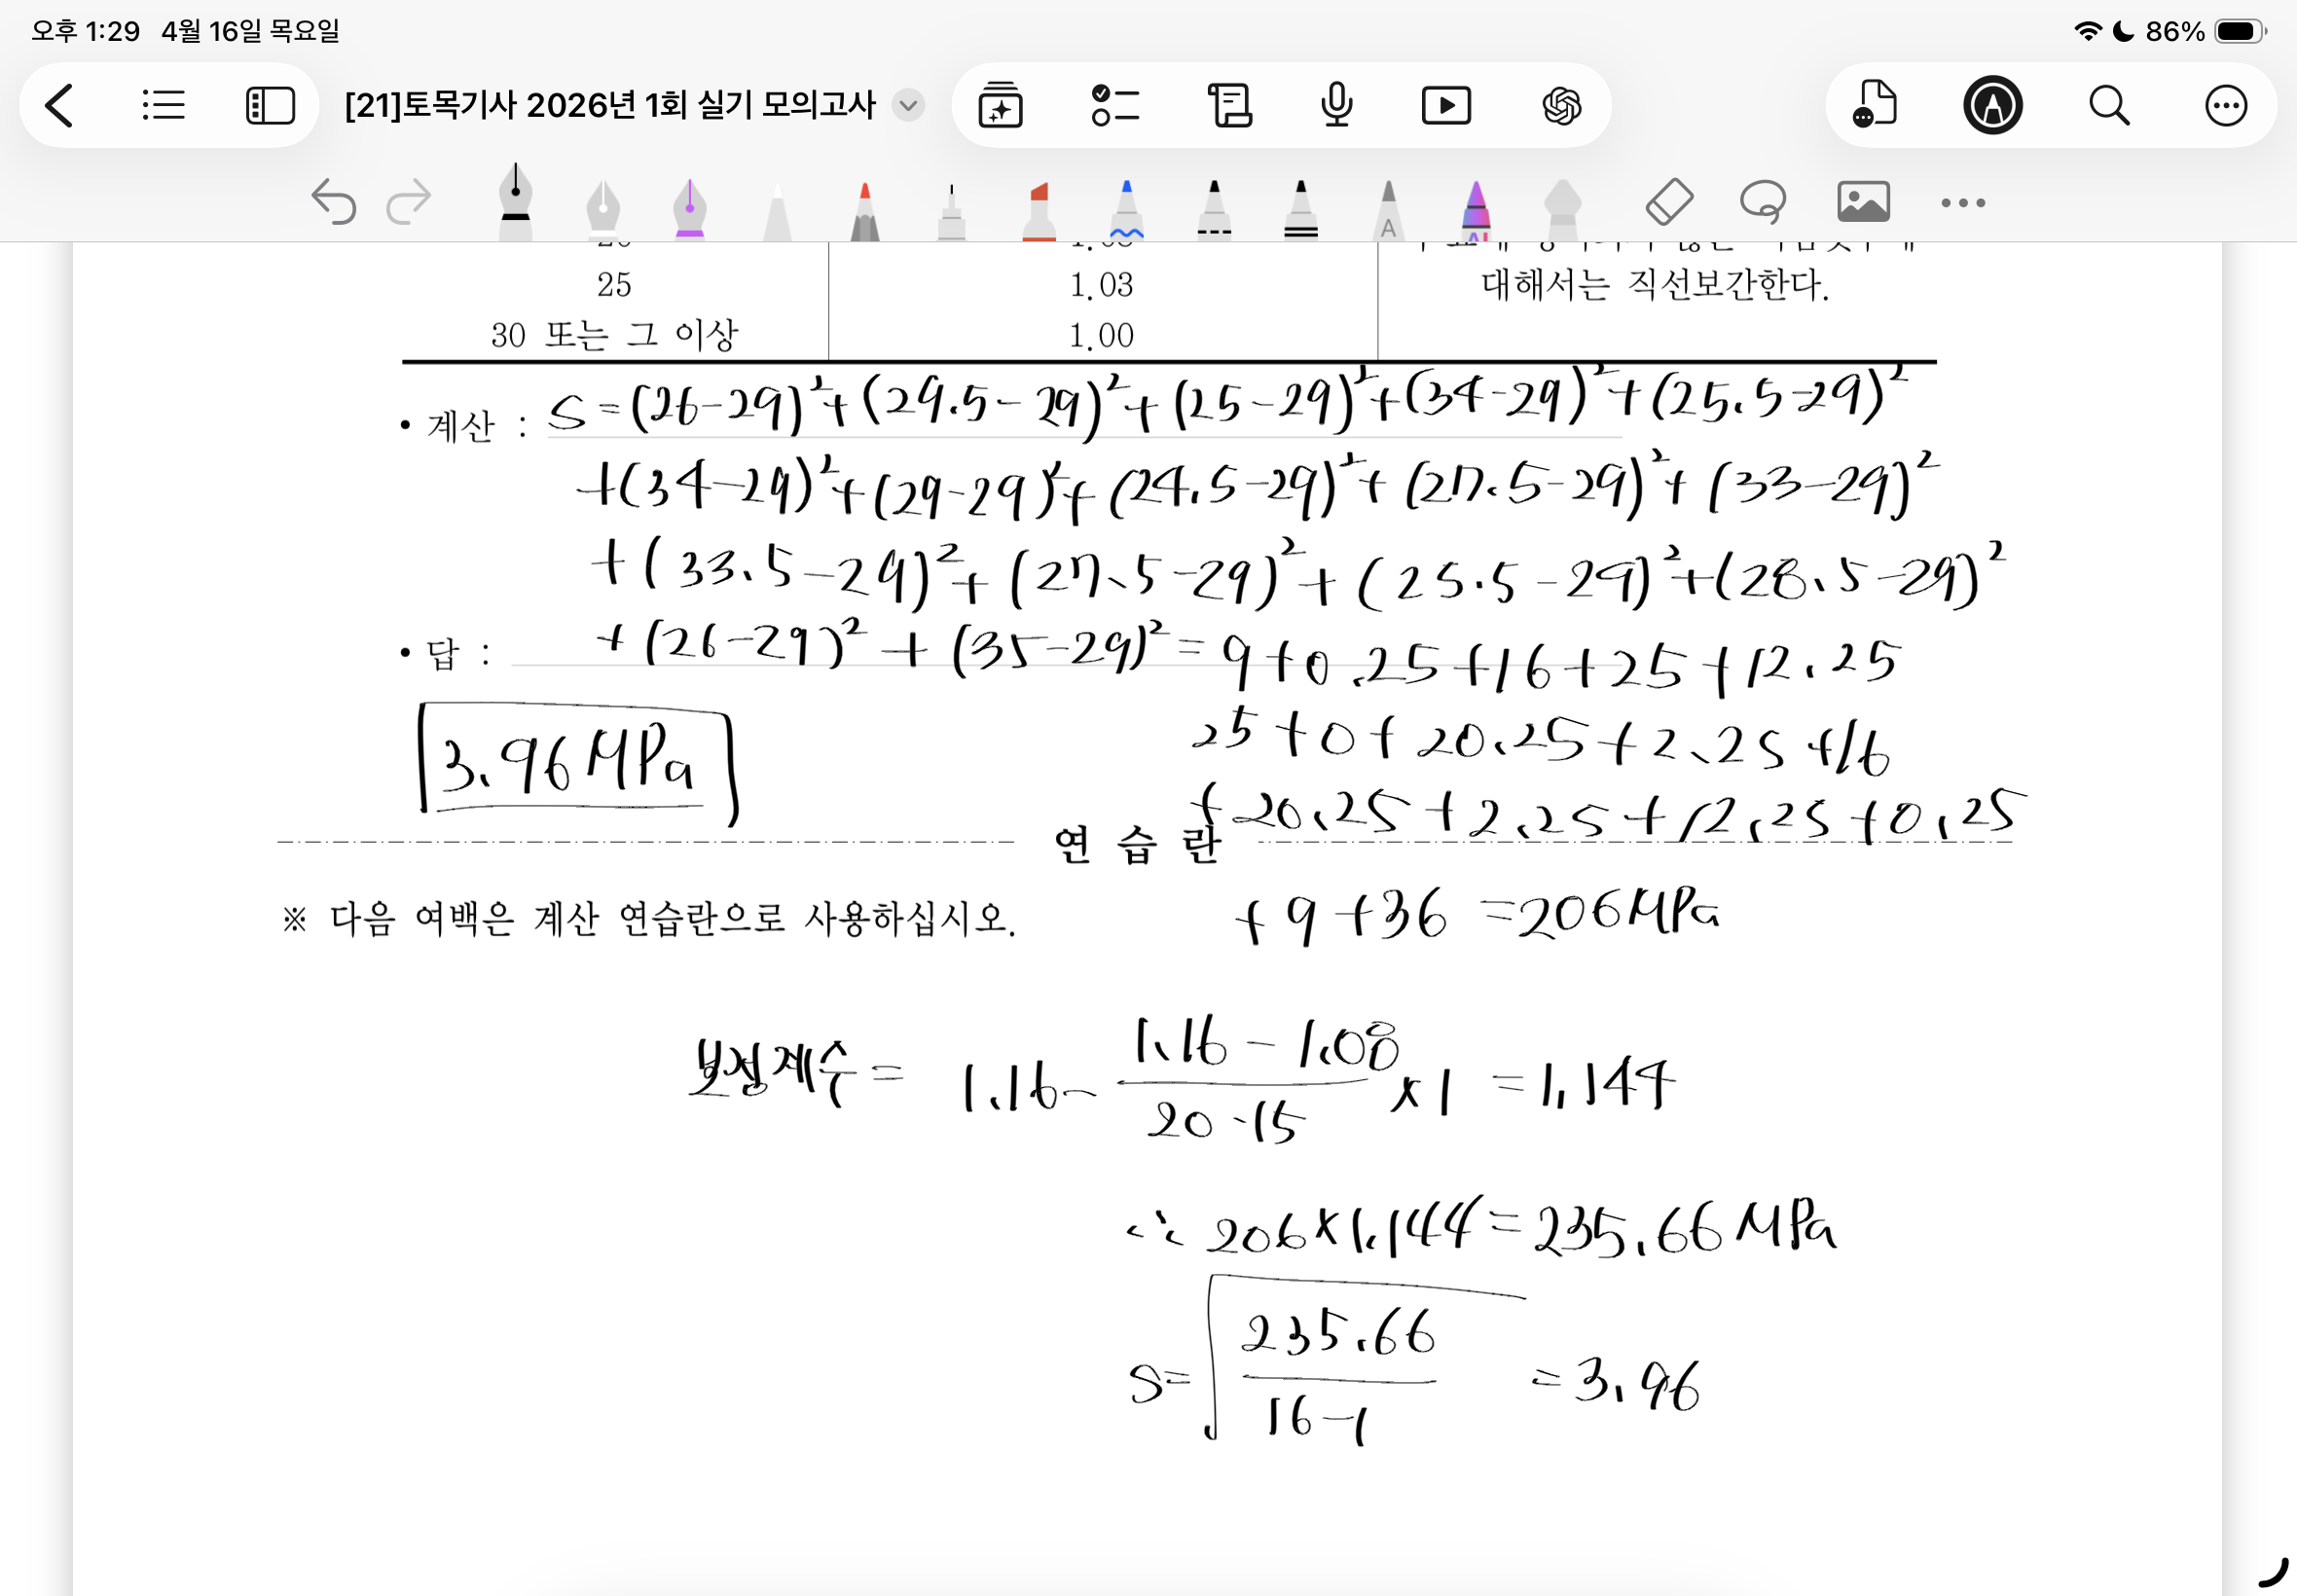 오후 1:29 4월 16일 목요일
86%
[21]토목기사 2026년 1회 실기 모의고사
A
25 1.03 대해서는 직선보간한다.
30 또는 그 이상 1.00
• 계산 : S = (26-29)²+(29.5-29)²+(25-29)²+(34-29)²+(25.5-29)²
+(34-29)²+(29-29)²+(24.5-29)²+(27.5-29)²+(33-29)²
+(33.5-29)²+(27.5-29)²+(25.5-29)²+(28.5-29)²
• 답 : +(26-29)²+(35-29)² = 9+0.25+16+25+12.25
25+0+20.25+2.25+16
3.96 MPa
+20.25+2.25+12.25+0.25
연 습 란
※ 다음 여백은 계산 연습란으로 사용하십시오.
+9+36 =206MPa
보정계수 = 1.16- (1.16-1.08)/(20-15) ×1 =1.144
∴ 206×1.144=235.66 MPa
S=√(235.66/(16-1)) =3.96